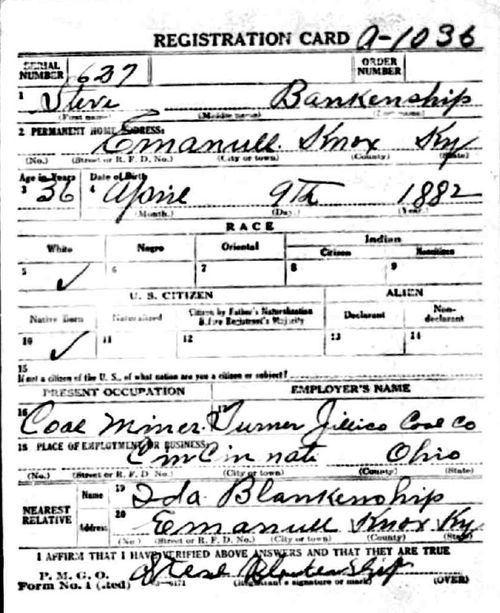 REGISTRATION CARD A-1036
SERIAL NUMBER 637 ORDER NUMBER
1 Steve Bankenship
(First name) (Middle name) (Last name)
2 PERMANENT HOME ADDRESS: Emanuell Knox Ky
(No.) (Street or R. F. D. No.) (City or town) (County) (State)
Age in Years Date of Birth
3 36 4 Aprie 9Th 1882
(Month.) (Day.) (Year.)
RACE
White Negro Oriental Indian
Citizen Noncitizen
5 ✓ 6 7 8 9
U. S. CITIZEN ALIEN
Native Born Naturalized Citizen by Father's Naturalization Before Registrant's Majority Declarant Non-declarant
10 ✓ 11 12 13 14
15
If not a citizen of the U. S., of what nation are you a citizen or subject?
PRESENT OCCUPATION EMPLOYER'S NAME
16 Coal Miner 17 Turner Jillico Coal Co
18 PLACE OF EMPLOYMENT OR BUSINESS:
CinCin nati Ohio
(No.) (Street or R. F. D. No.) (City or town) (County) (State)
NEAREST RELATIVE Name 19 Ida Blankenship
Address 20 Emanuell Knox Ky
(No.) (Street or R. F. D. No.) (City or town) (County) (State)
I AFFIRM THAT I HAVE VERIFIED ABOVE ANSWERS AND THAT THEY ARE TRUE
P. M. G. O.
Form No. 1 (Red) (Registrant's signature or mark) (OVER)